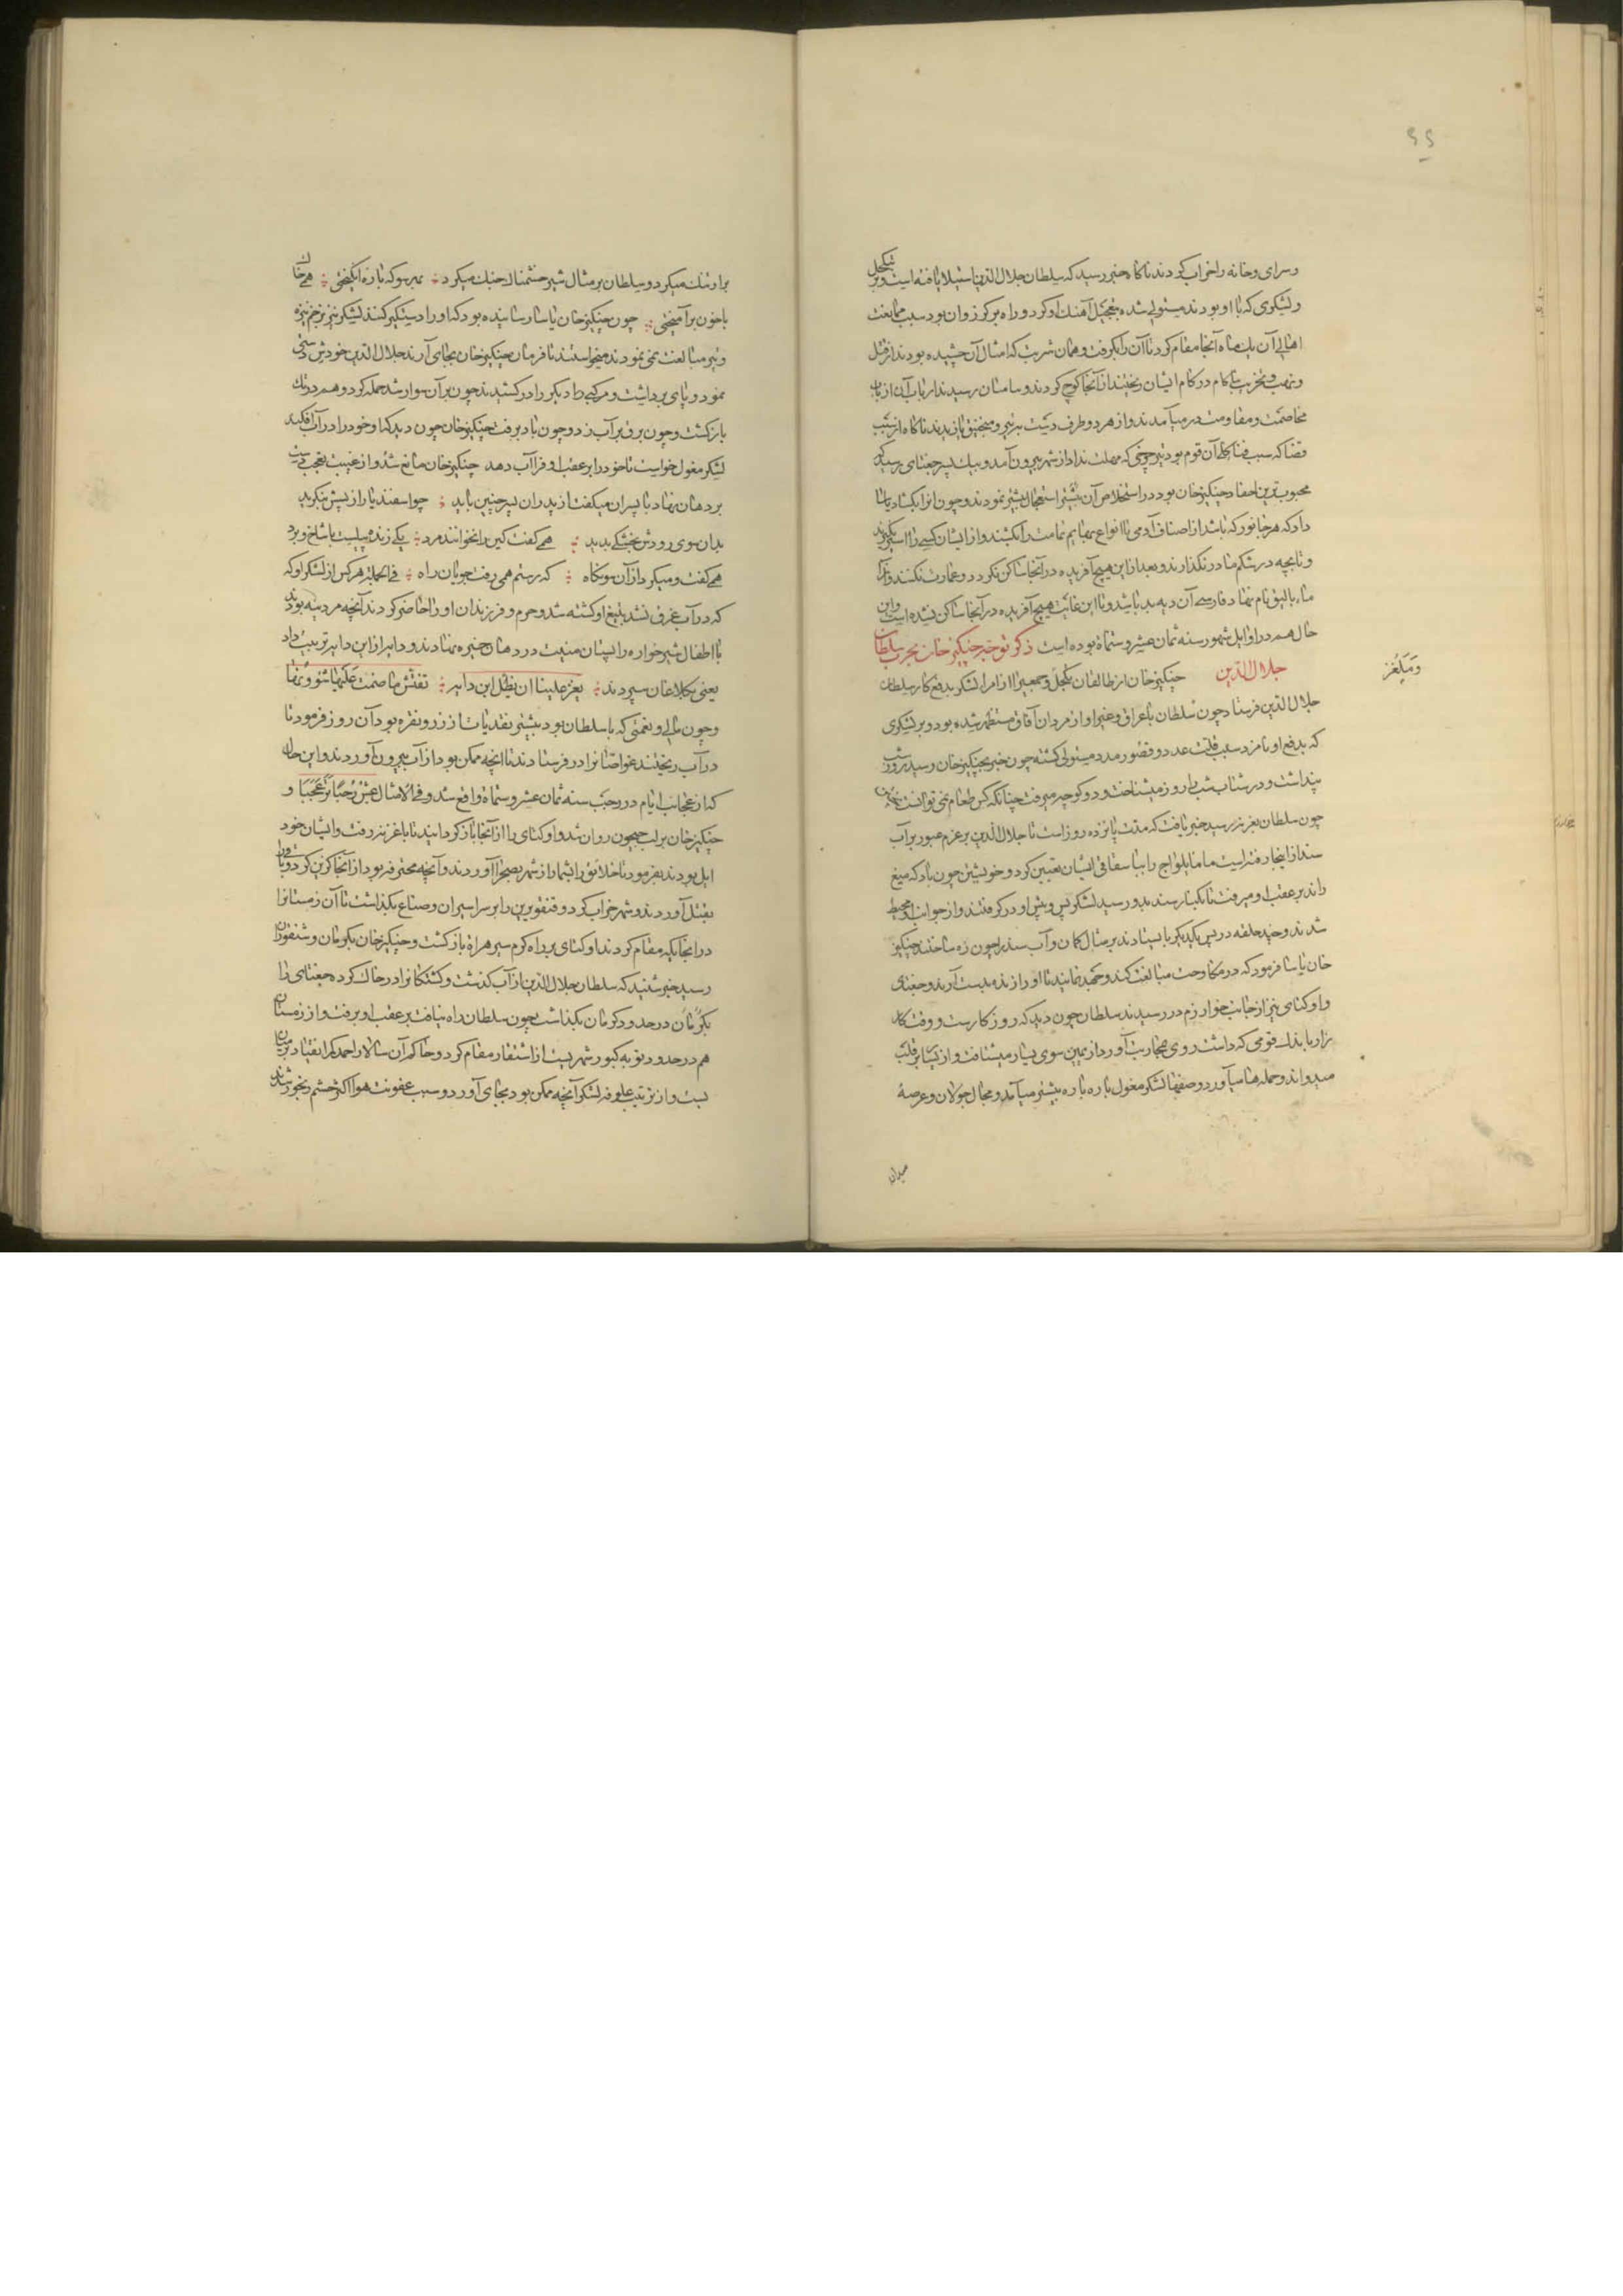 ۶۶
و سرای و خانه را خراب کردند ناکاه خبر رسید که سلطان جلال الدین استیلا یافته است و بر تکجل
و لشکری که با او بودند مستولی شده بتعجیل آهنک او کرد و راه بر کرزوان بود سبب ممانعت
اهالی آن یک ماه آنجا مقام کرد تا آن را بکرفت و همان شربت که امثال آن چشیده بودند از قتل
و نهب و تخریب در کام ایشان ریختند از آنجا کوچ کردند و بامیان رسیدند ارباب آن از باب
مخاصمت و مقاومت در میآمدند و از هر دو طرف دست بتیر و منجنیق یازیدند ناکاه از شست
قضا که سبب فنا کلی آن قوم بود تیر چرخی که مهلت نداد از شهر بیرون آمد و بیک پسر جغتای رسید که
محبوب ترین احفاد چنکیز خان بود در استخلاص آن بیشتر استعجال بیشتر نمودند و چون انرا بکشاد یاسا
داد که هر جانور که باشد از اصناف آدمی تا انواع بهایم تمامت را بکشند و از ایشان کسی را اسیر نکیرند
و تا بچه در شکم مادر نکذارند و بعد از این هیچ آفریده در آنجا ساکن نکردد و عمارت نکنند و آنرا
ماء بالیق نام نهاد فارسی آن دیه بد باشد و تا این غایت هیچ آفریده در آنجا ساکن نشده است و این
حال هم در اوایل شهور سنه ثمان عشر و ستمائة بوده است ذکر توجه چنکیز خان بحرب سلطان
جلال الدین چنکیز خان از طالقان تکجل و جمعی را از امرا لشکر بدفع کار سلطان
جلال الدین فرستاد چون سلطان باغراق و غیر او از مردان آفاق مستظهر شده بود و بر لشکری
که بدفع او نامزد سبب قلت عدد و قصور مدد مستولی کشته چون خبر بچنکیز خان رسید روز شب
پنداشت و در شتاب شب را روز میشناخت و دو کوچه میرفت چنانکه کس طعام نمی توانست پختن
چون سلطان بغزنین رسید خبر یافت که مدت پانزده روز است تا جلال الدین بر عزم عبور بر آب
سند از اینجا رفته است ماما یلواج را بباسقاقی ایشان تعیین کرد و خویشتن چون باد که میغ
راند بر عقب او میرفت تا بکنار سند بدو رسید لشکر پس و پیش او در کرفتند و از جوانب او محیط
شدند و چند حلقه در پس یکدیکر بایستادند بر مثال کمان و آب سند را چون زه ساختند چنکیز
خان یاسا فرمود که در مکاوحت مبالغت کنند و جهد نمایند تا او را زنده بدست آرند و جغتای
و اوکتای نیز از جانب خوارزم در رسیدند سلطان چون دید که روز کارست و وقت کار
زار با اندک قومی که داشت روی بمحاربت آورد از یمین سوی یسار میشتافت و از یسار بر قلب
میدواند و حمله ها میآورد و صفهاء لشکر مغول پاره پاره بیشتر میآمد و مجال جولان و عرصهٔ
میدان
براو تنک میکرد و سلطان بر مثال شیر خشمناک جنک میکرد بهر سو که باره انکیختی همی خاک
با خون برآمیختی چون چنکیز خان یاسا رسانیده بود که او را دستکیر کنند لشکر نیز بزخم نیزه
و تیر مبالغت نمی نمودند میخواستند تا فرمان چنکیز خان بجای آرند جلال الدین خود پیش دستی
نمود و پای برداشت و مرکبی را دیکر را در کشیدند چون بر آن سوار شد حمله کرد و هم در تک
باز کشت و چون برق بر آب زد و چون باد برفت چنکیز خان چون دید که او خود را در آب افکند
لشکر مغول خواست تا خود را بر عقب او فرا آب دهد چنکیز خان مانع شد و از غیبت تعجب دست
بر دهان نهاد با پسران میکفت از پدران پسر چنین باید چو اسفندیار از پسش بنکرید
بدان سوی رودش بخشکی بدید همی کفت کین را نخوانند مرد یکی زنده پیلست با شاخ و برد
همی کفت و میکرد از آن سو نکاه که رستم همی رفت جویان راه فی الجمله هر کس از لشکر او که
که در آب غرق نشد بتیغ او کشته شد و حرم و فرزندان او را حاضر کردند آنچه مردینه بودند
با اطفال شیر خواره را پستان منیت در دهان خیره نهادند و دایه را از ابن دایه ترتیب داد
یعنی بکلاغان سپردند یعز علینا ان یظل ابن دایه تفتش ما ضمت علیها شئونها
و چون مالی و نعمتی که با سلطان بود بیشتر نقدیات از زر و نقره بود آن روز فرمود تا
در آب ریختند غواصانرا در فرستادند تا انچه ممکن بود از آب بیرون آوردند و این حال
که از عجایب ایام در رجب سنه ثمان عشر و ستمائة واقع شد و فی الامثال عش رجبا تر عجبا و
چنکیز خان بر لب جیحون روان شد و اوکتای را از آنجا باز کردانید تا با غزنین رفت و ایشان خود
ایل بودند بفرمود تا خلایق را بشمار از شهر بصحرا آوردند و آنچه محترفه بود از انجا کزین کرد و باقی را
بقتل آوردند و شهر خراب کرد و قتقو نوین را بر سر اسیران و صناع بکذاشت تا آن زمستانرا
در انجایکه مقام کردند اوکتای بر راه کرم سیر هراة باز کشت و چنکیز خان بکرمان و شنقوران
رسید خبر شنید که سلطان جلال الدین از آب کذشت و کشتکانرا در خاک کرده جغتای را
بکرمان در حدود کرمان بکذاشت چون سلطان را نیافت بر عقب او برفت و از زمستان
هم در حدود بویه کبور شهریست از اشتقار مقام کرد و حاکم آن سالار احمد کمر انقیاد بر میان
بست و از ترتیب علوفه لشکر آنچه ممکن بود بجای آورد و سبب عفونت هوا اکثر حشم رنجور شدند